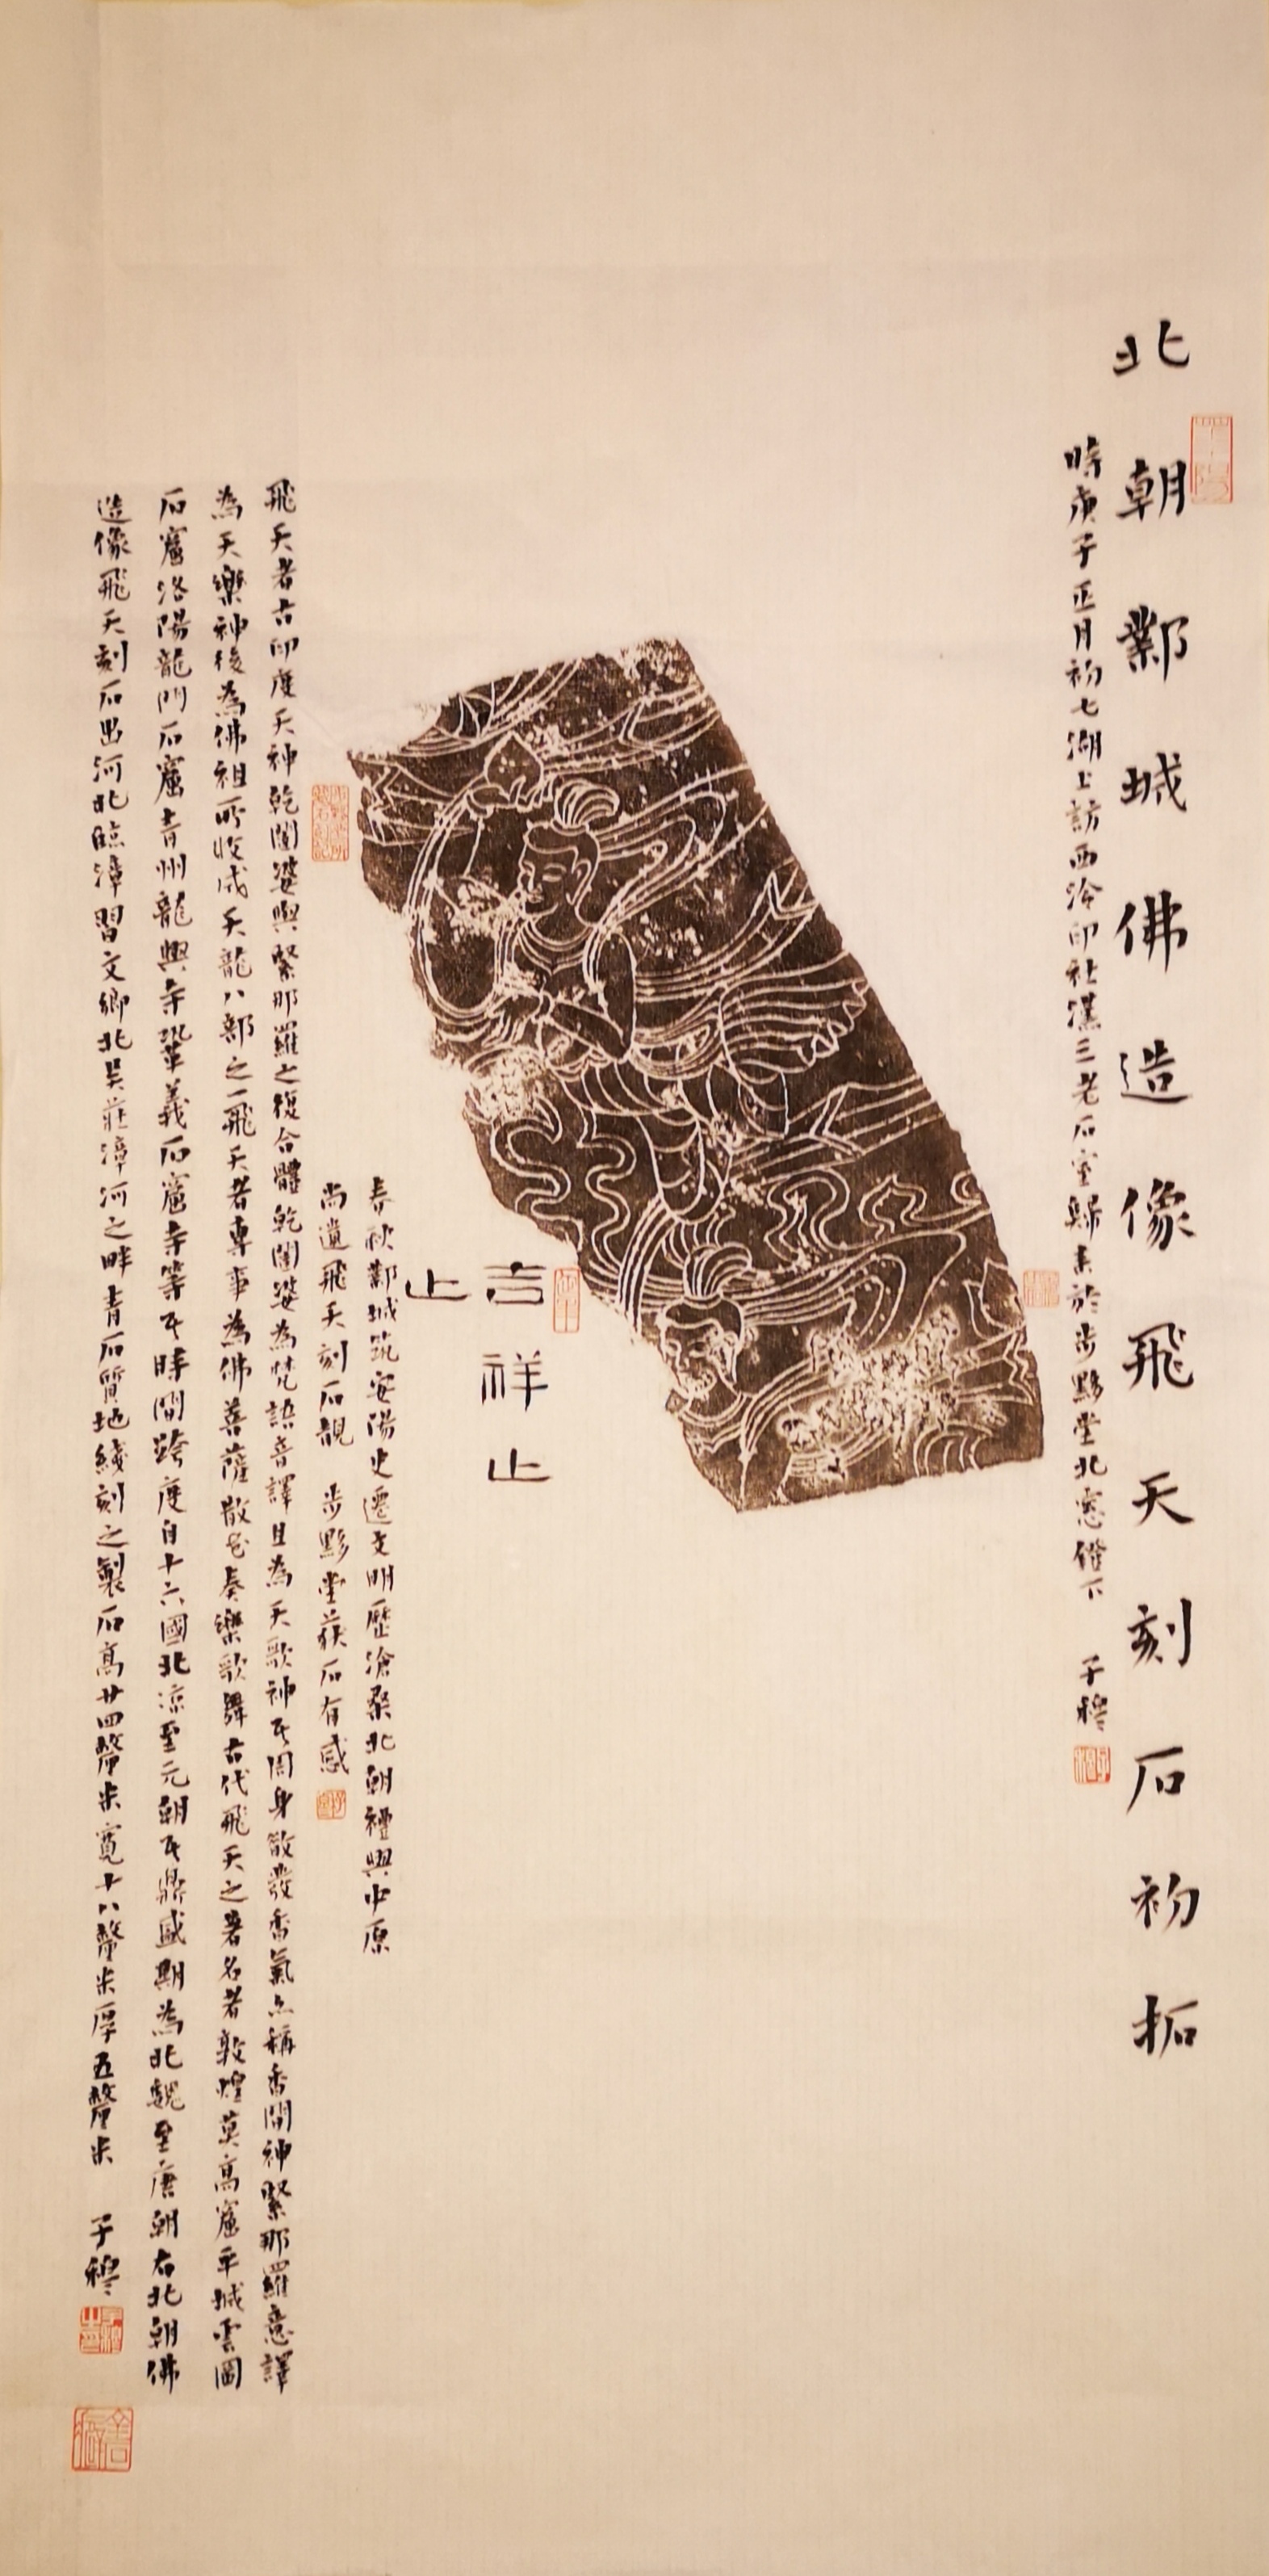 北朝鄴城佛造像飛天刻石初拓
時庚子正月初七湖上訪西泠印社漢三老石室歸來於步黟堂北窗燈下 子穆
吉祥止
止
春秋鄴城筑安陽史遷文明歷滄桑北朝禮興中原
尚遺飛天刻石靚 步黟堂获石有感
飛天者古印度天神乾闥婆與緊那羅之復合體乾闥婆為梵語音譯且為天歌神其周身散發香氣亦稱香間神緊那羅意譯
為天樂神後為佛祖所收成天龍八部之一飛天者專事為佛菩薩散花奏樂歌舞古代飛天之著名者敦煌莫高窟平城雲岡
石窟洛陽龍門石窟青州龍興寺鞏義石窟寺等其時間跨度自十六國北凉至元朝其鼎盛期為北魏至唐朝右北朝佛
造像飛天刻石出河北臨漳習文鄉北吴莊漳河之畔青石質地綫刻之製石高廿四釐米寬十八釐米厚五釐米 子穆